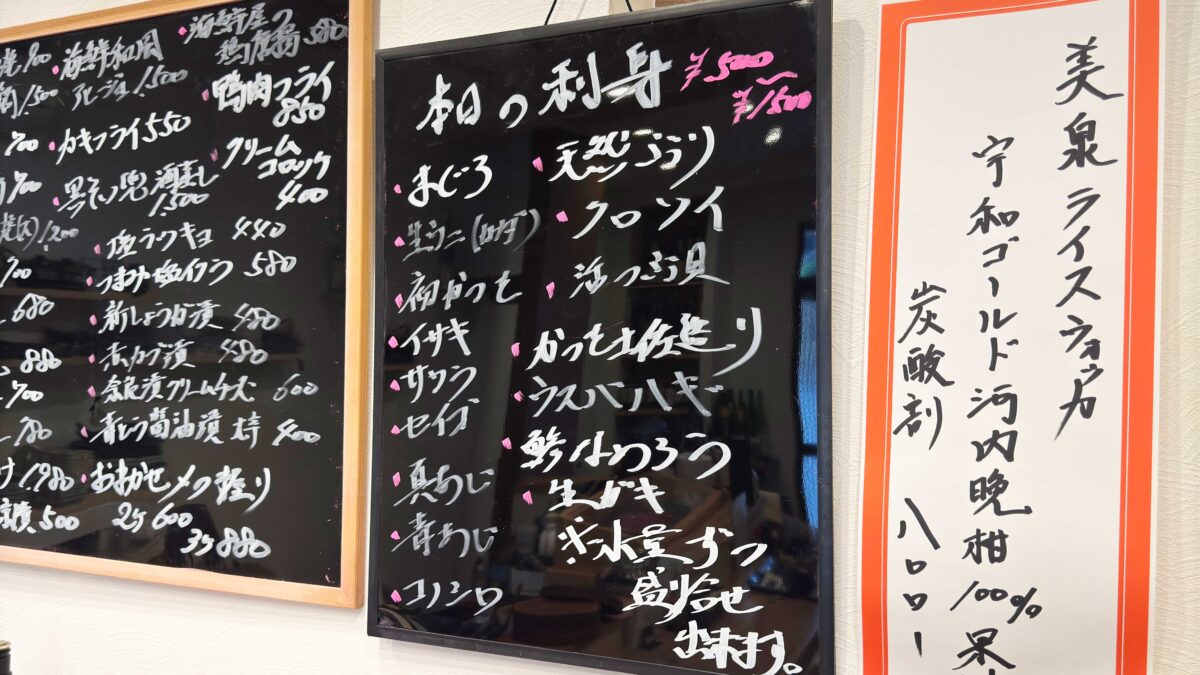 焼 700
1,500
700
700
1,200
700
680
880
700
780
け 1,980
漬 500
海鮮和風
アヒージョ 1,500
カキフライ 550
黒ソイ兜酒蒸し
1,500
塩ラッキョ 440
つまみ塩イクラ 580
新しょうが漬 480
赤カブ漬 480
奈良漬クリームチーズ 600
青とう醤油漬 400
おまかせ〆の握り
2ケ 600
3ケ 880
海鮮屋の
鶏唐揚 580
鴨肉フライ
850
クリーム
コロッケ
400
本日の刺身
¥500
〜
¥1500
まぐろ
生ウニ
初かつを
イサキ
サワラ
セイゴ
真あじ
青あじ
コノシロ
天然ぶり
クロソイ
活つぶ貝
かつを土佐造り
ウスバハギ
鯵なめろう
生ガキ
※少量ずつ
盛り合せ
出来ます。
美泉ライスウォッカ
宇和ゴールド河内晩柑100%果
炭酸割 八〇〇ー